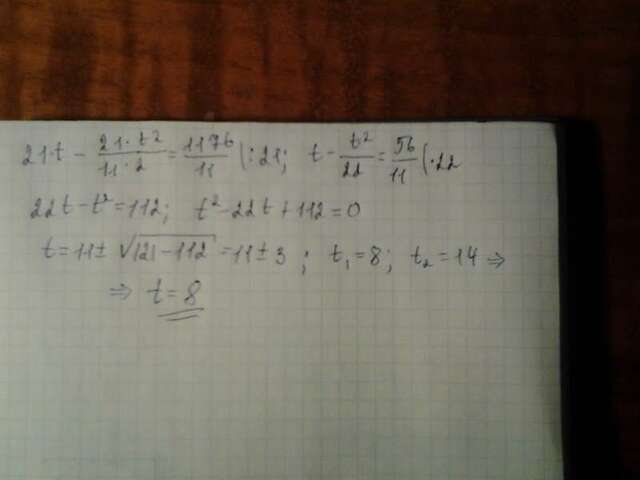 21·t - \frac{21·t^2}{11·2} = \frac{1176}{11} |:21; t - \frac{t^2}{22} = \frac{56}{11} |·22
22t - t^2 = 112; t^2 - 22t + 112 = 0
t = 11 ± √(121 - 112) = 11 ± 3; t_1 = 8; t_2 = 14 ⇒
⇒ t = 8